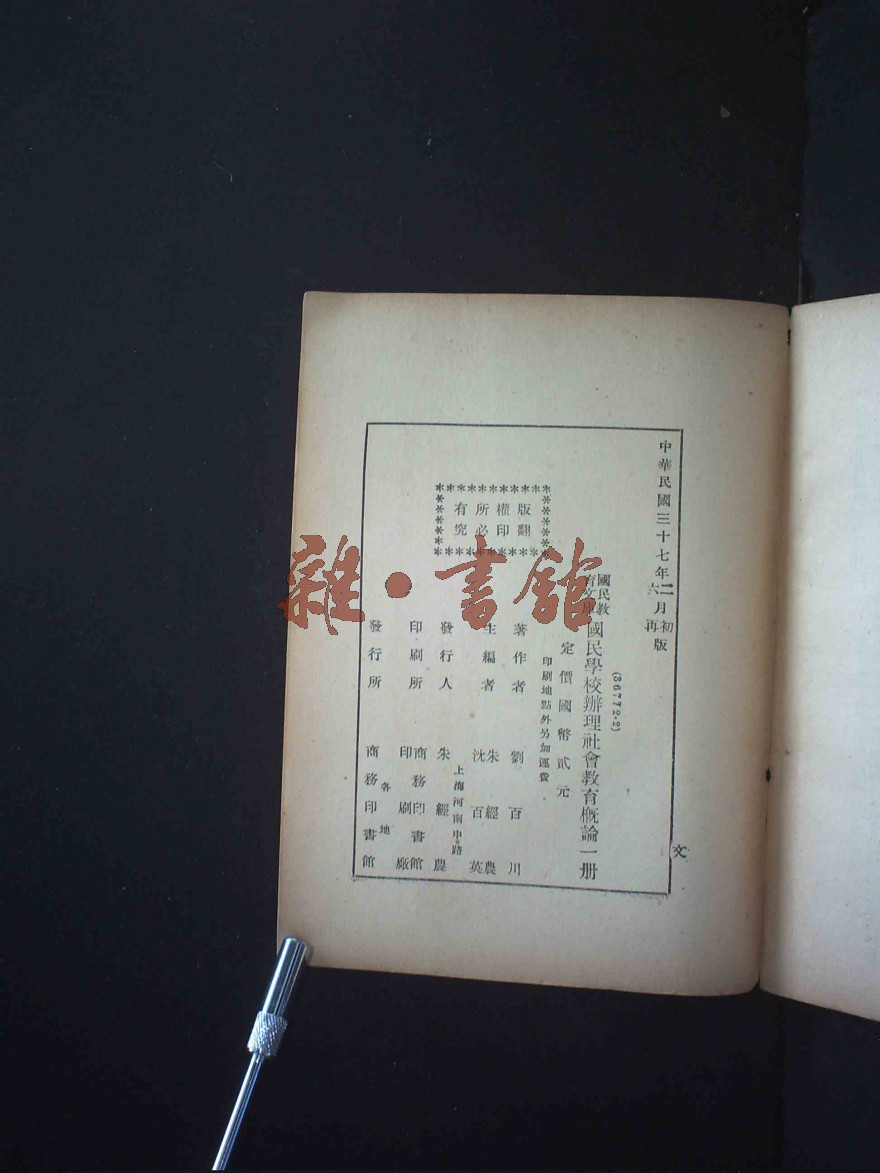 中華民國三十七年二月初版
六月再版
(36772·2)
國民教育文庫
國民學校辦理社會教育概論一册
定價國幣貳元
印刷地點外另加運費
版權所有
翻印必究
著作者 劉百川
主編者 朱經農
沈百英
上海河南中路
發行人 朱經農
印刷所 商務印書館
印刷廠
各地
發行所 商務印書館
文
雜·書館